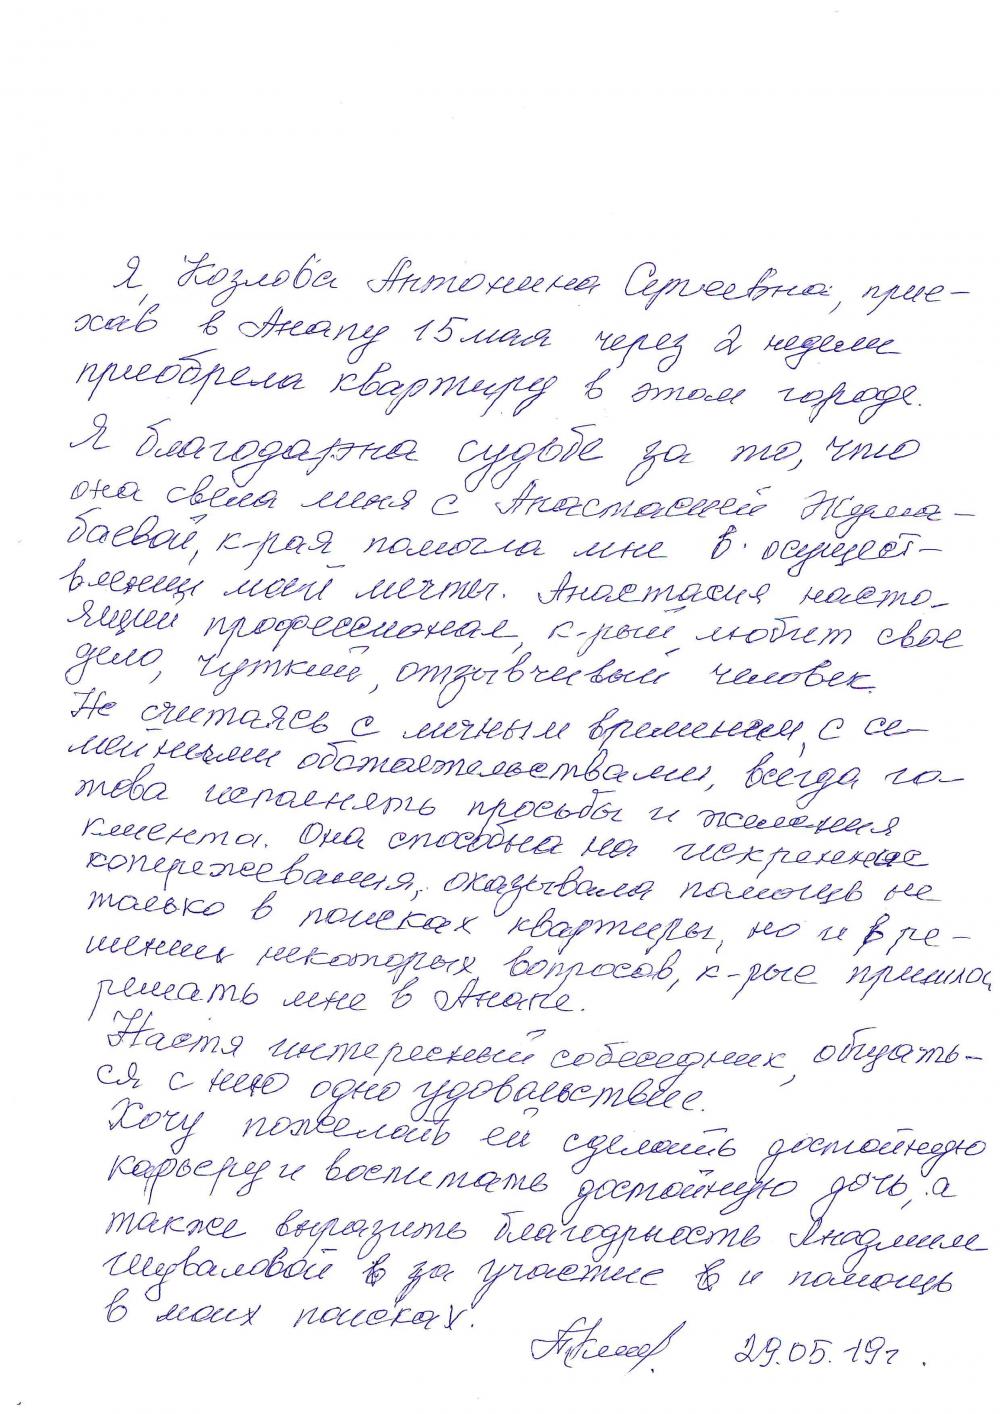 Я, Козлова Антонина Сергеевна, прие-
хав в Анапу 15 мая через 2 недели
приобрела квартиру в этом городе.
Я благодарна судьбе за то, что
она свела меня с Анастасией Жума-
баевой, к-рая помогла мне в осущест-
влении моей мечты. Анастасия насто-
ящий профессионал, к-рый любит свое
дело, чуткий, отзывчивый человек.
Не считаясь с личным временем, с се-
мейными обстоятельствами, всегда го-
това исполнять просьбы и желания
клиента. Она способна на искренние
сопереживания, оказывала помощь не
только в поисках квартиры, но и в ре-
шении некоторых вопросов, к-рые пришлось
решать мне в Анапе.
Настя интересный собеседник, общать-
ся с нею одно удовольствие.
Хочу пожелать ей сделать достойную
карьеру и воспитать достойную дочь, а
также выразить благодрность Людмиле
Шуваловой за участие и помощь
в моих поисках.
29.05.19г.